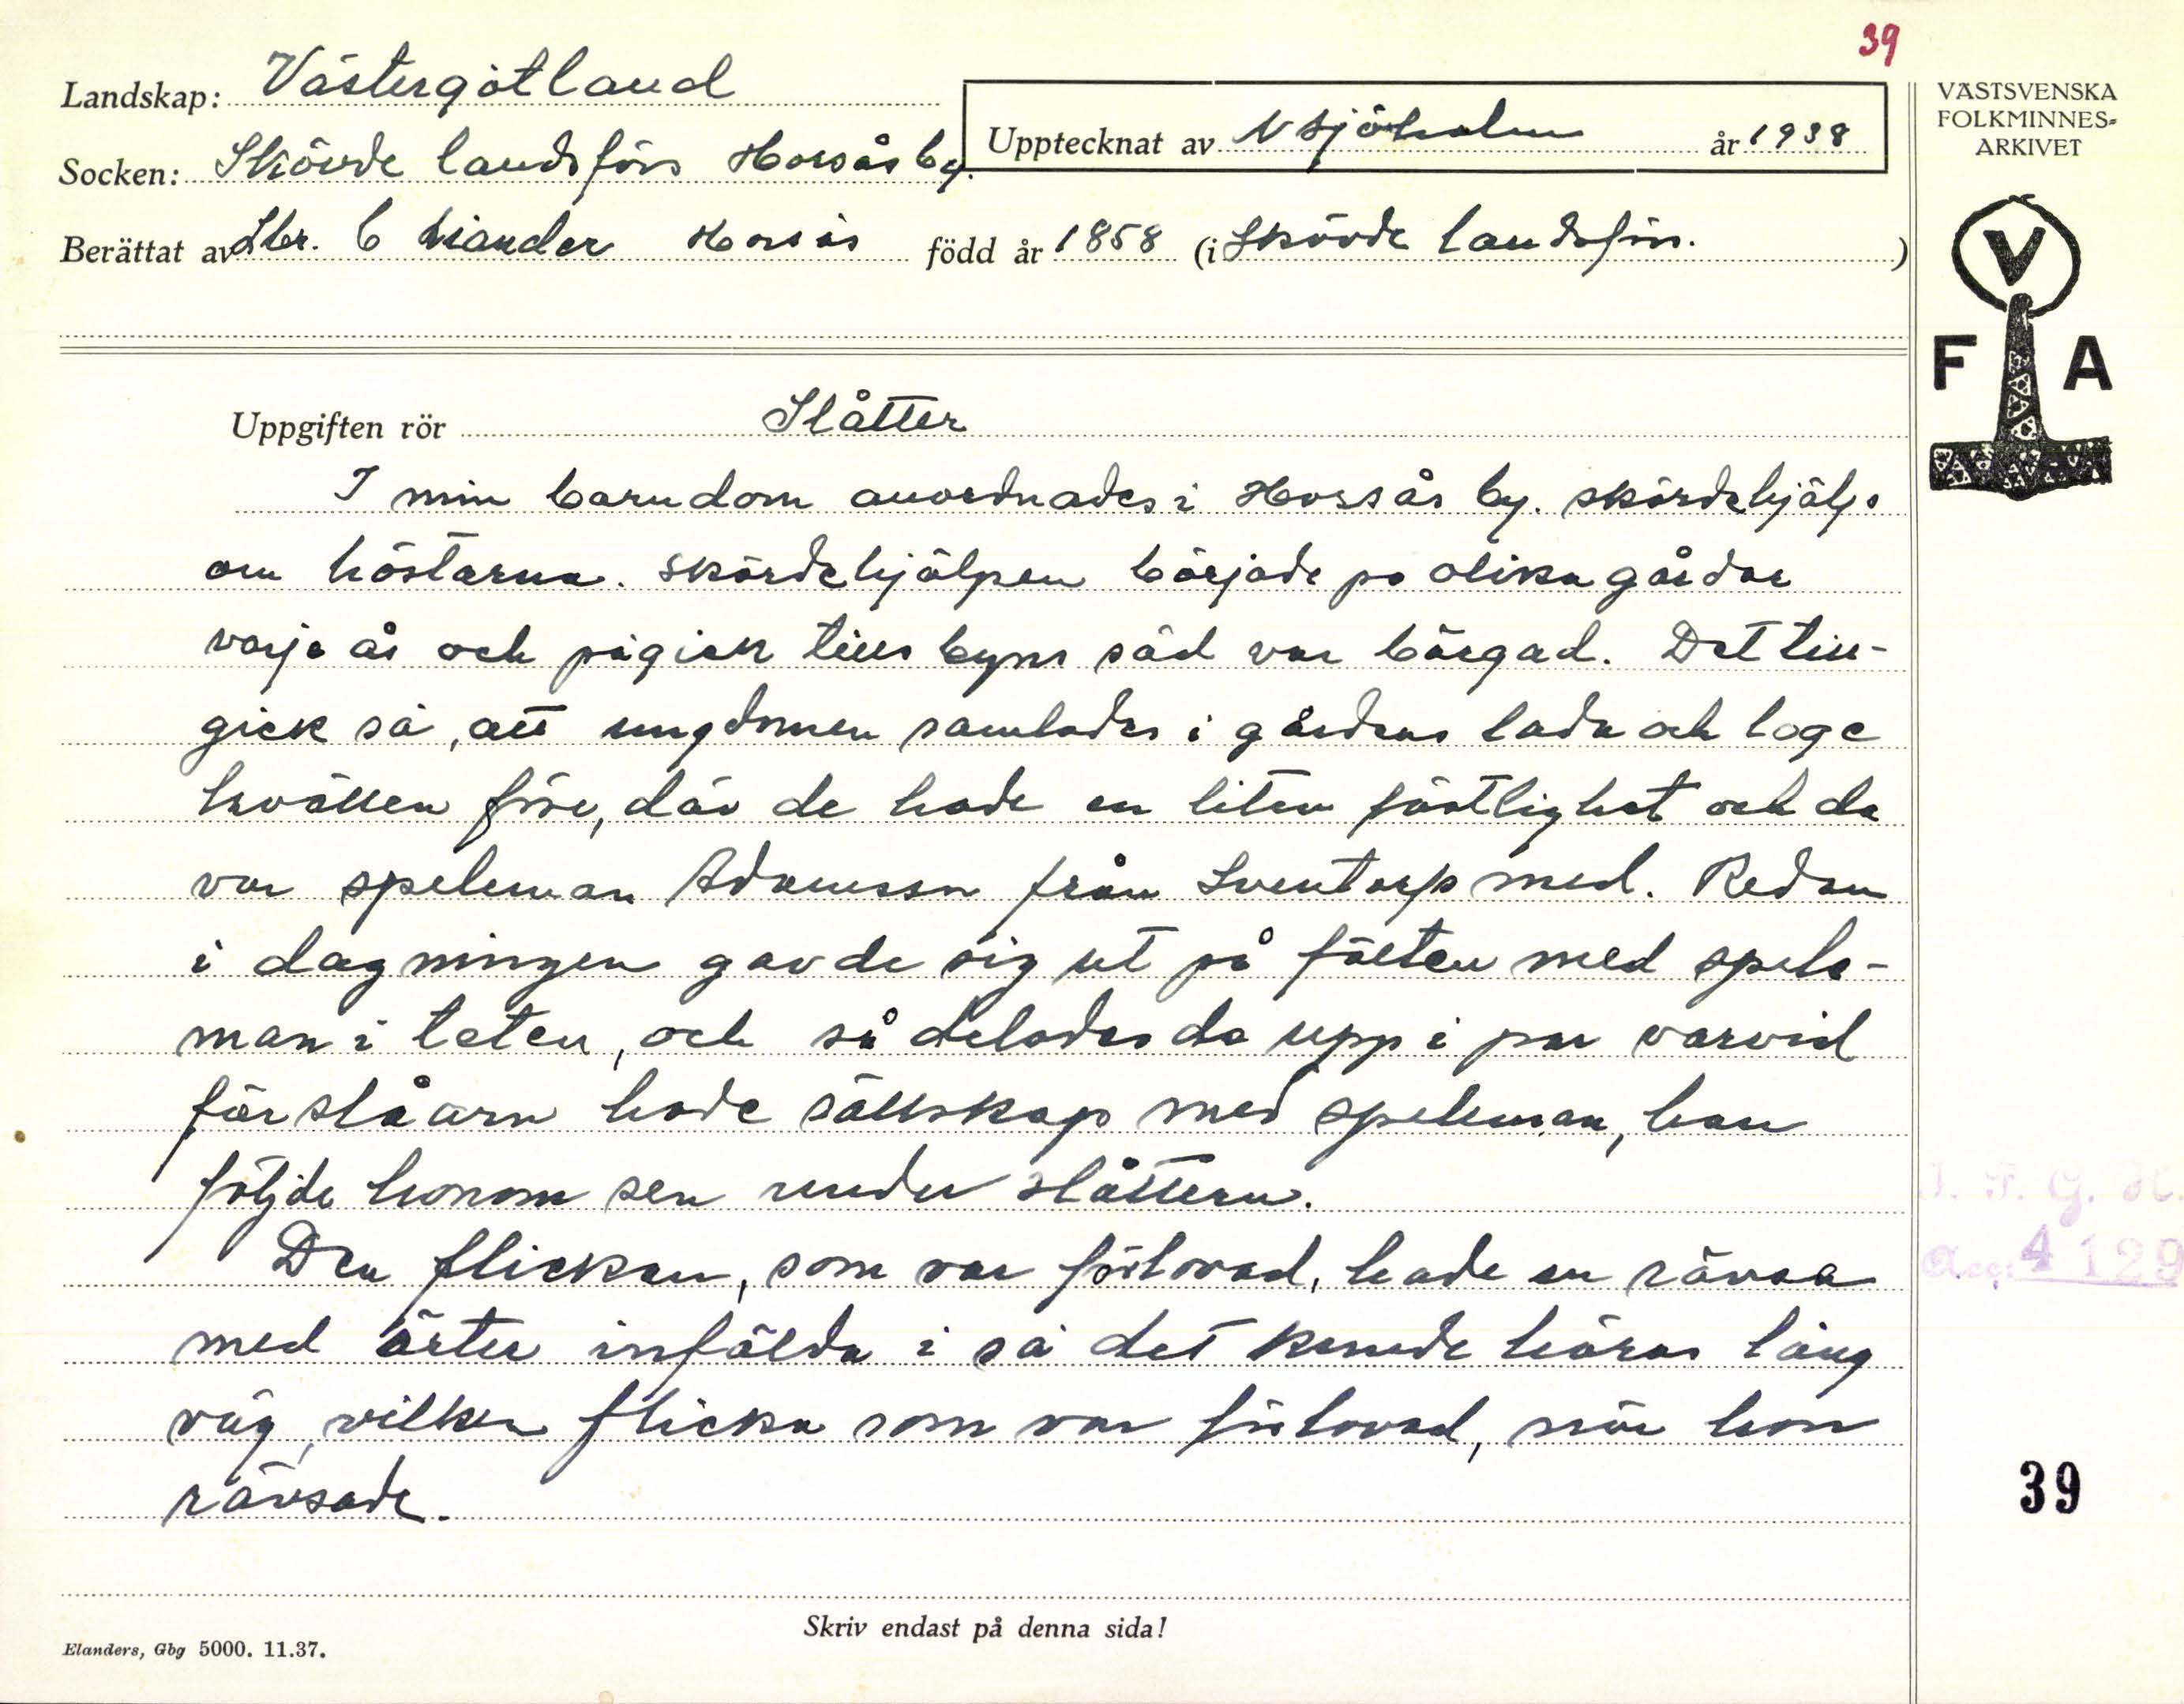 39
Landskap: Västergötland
Upptecknat av N Sjöholm år 1938
Socken: Skövde landsförs Horsås by.
Berättat av Hbr. C Liander Horsås född år 1858 (i Skövde landsförs. )
VÄSTSVENSKA
FOLKMINNES-
ARKIVET
V
F A
Uppgiften rör Slåtter
I min barndom anordnades i Horsås by. skördehjälp
om höstarna. Skördehjälpen började po olika gårdar
varje år och pågick tills byns säd var bärgad. Det till-
gick så, att ungdomen samlades i gårdens lada och loge
kvällen före, där de hade en liten fästlighet och da
var speleman Adamsson från Sventorp med. Redan
i dagningen gav de sig ut på fälten med spele-
man i teten, och så delades da upp i par varvid
förslåarn hade sällskap med speleman, han
följde honom sen under slåttern.
Den flickan, som var förlovad, hade en rävsa
med ärter infälda i så det kunde höras lång
väg, vilken flicka som var förlovad, när hon
rävsade.
I. F. G. H.
Acc: 4129
39
Skriv endast på denna sida!
Elanders, Gbg 5000. 11.37.